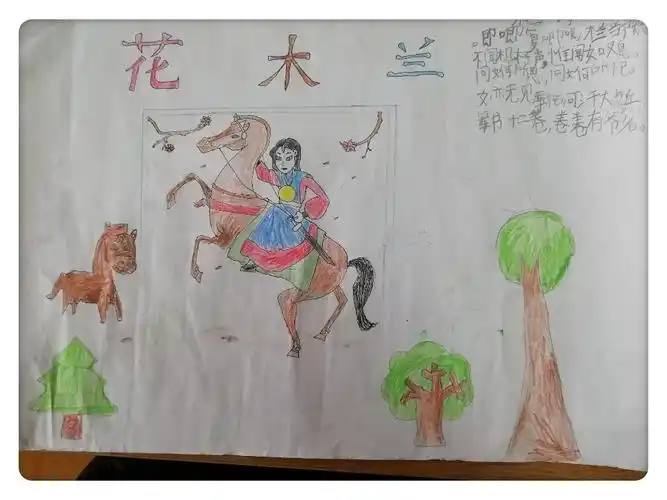 花木兰
唧唧复唧唧,木兰当户
不闻机杼声,惟闻女叹息。
问女何所思,问女何所忆。
女亦无 见 可汗大点兵
军书十二卷,卷卷有爷名。